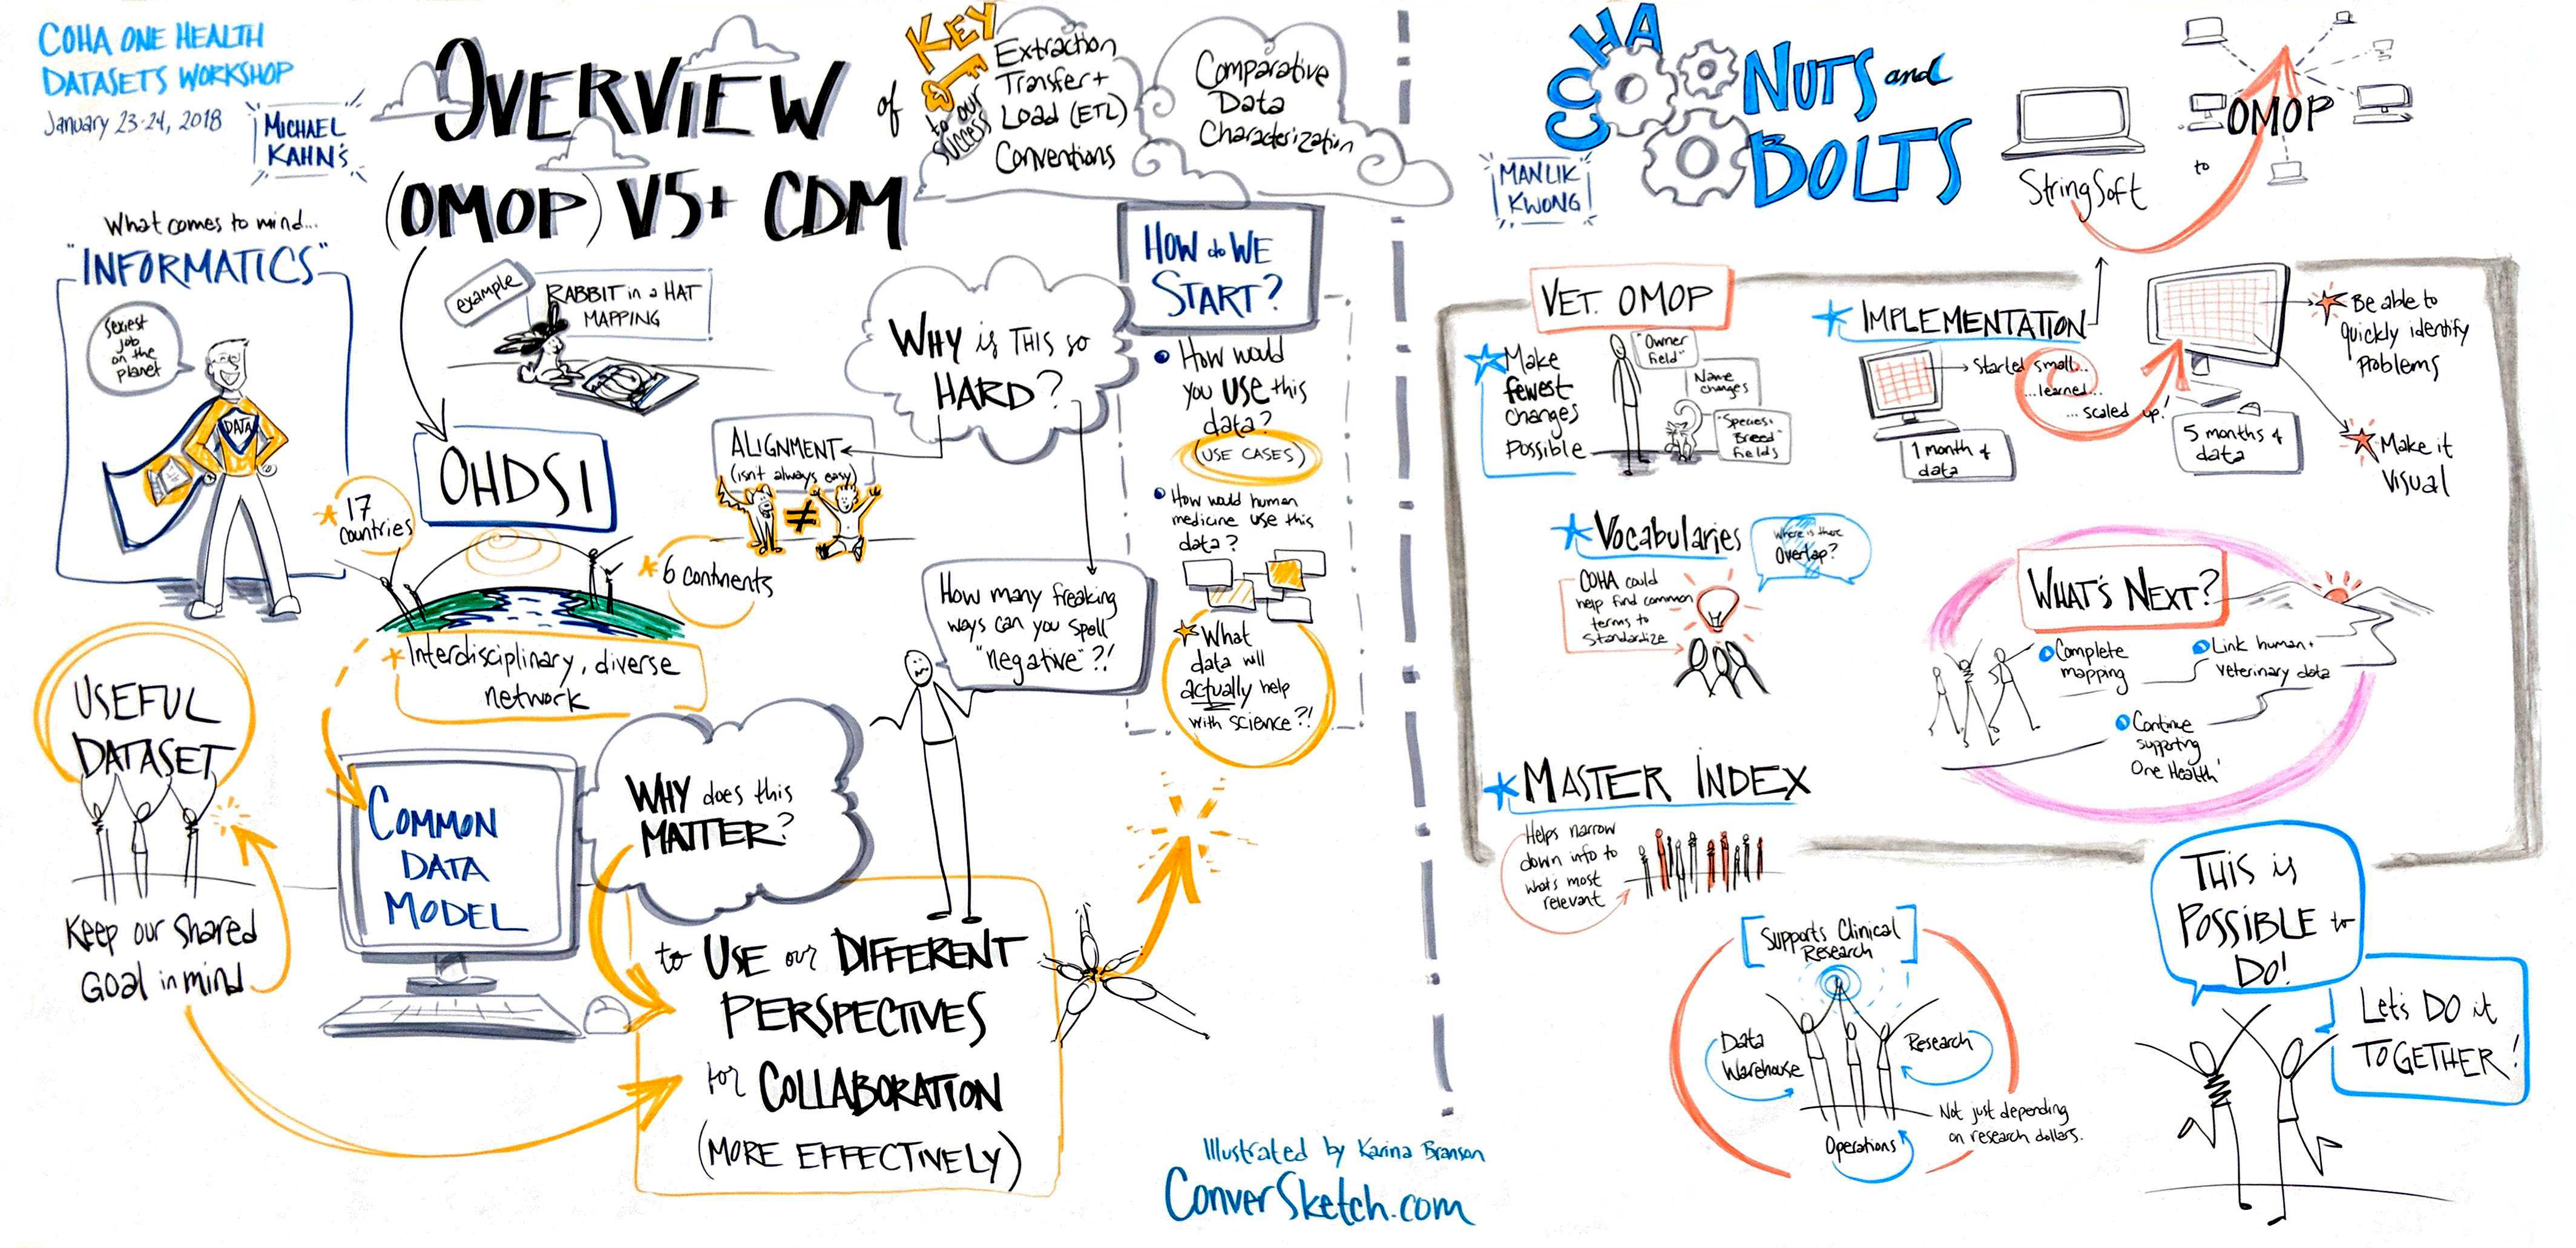 COHA ONE HEALTH
DATASETS WORKSHOP
January 23-24, 2018
MICHAEL
KAHN'S
OVERVIEW
of
(OMOP) V5+ CDM
KEY
to our
success
Extraction
Transfer +
Load (ETL)
Conventions
Comparative
Data
Characterization
What comes to mind...
"INFORMATICS"
Sexiest
job
on the
planet
DATA
example
RABBIT in a HAT
MAPPING
OHDSI
17
countries
6 continents
Interdisciplinary, diverse
network
WHY is THIS so
HARD?
ALIGNMENT
(isnt always easy)
≠
How many freaking
ways can you spell
"negative"?!
HOW do WE
START?
How would
you USE this
data?
(USE CASES)
How would human
medicine use this
data?
What
data will
actually help
with science?!
USEFUL
DATASET
Keep our shared
GOAL in mind
COMMON
DATA
MODEL
WHY does this
MATTER?
to USE our DIFFERENT
PERSPECTIVES
for COLLABORATION
(MORE EFFECTIVELY)
Illustrated by Karina Branson
ConverSketch.com
COHA
NUTS and
BOLTS
MANLIK
KWONG
StringSoft
to
OMOP
VET. OMOP
Make
fewest
changes
possible
"Owner
field"
Name
changes
"Species +
Breed"
fields
IMPLEMENTATION
Started small...
...learned...
...scaled up!
1 month of
data
5 months of
data
Be able to
quickly identify
problems
Make it
visual
Vocabularies
Where is there
Overlap?
COHA could
help find common
terms to
standardize
WHAT'S NEXT?
Complete
mapping
Link human +
veterinary data
Continue
supporting
One Health!
MASTER INDEX
Helps narrow
down info to
what's most
relevant
Supports Clinical
Research
Data
Warehouse
Research
Operations
Not just depending
on research dollars.
THIS is
POSSIBLE to
DO!
Let's DO it
TOGETHER!